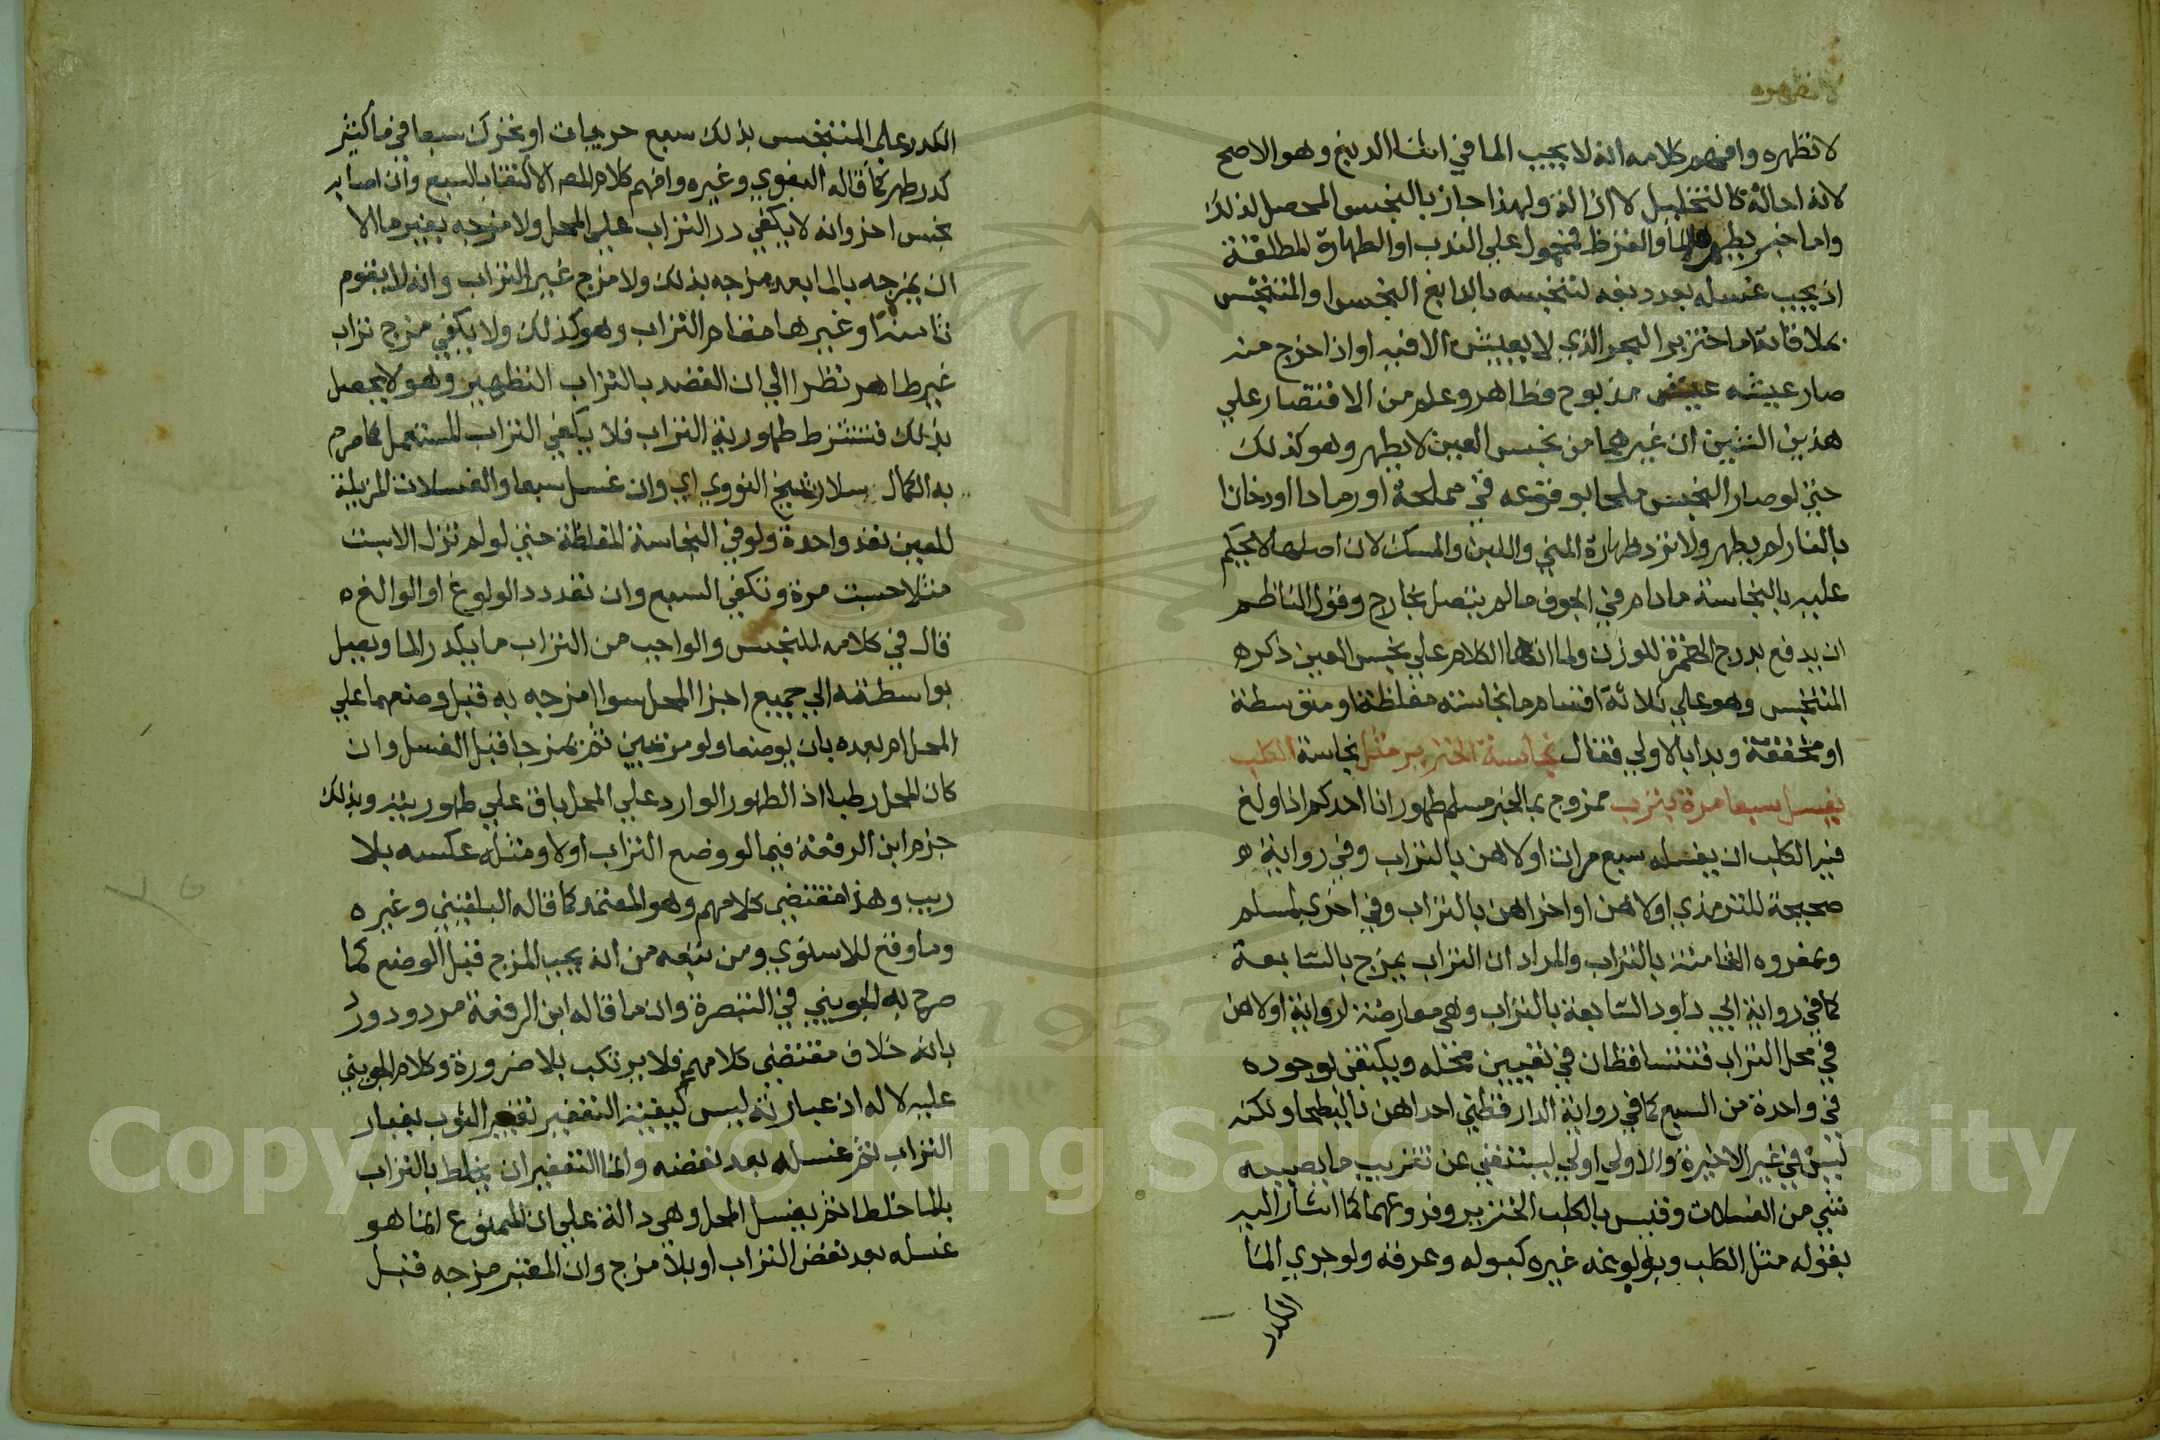 لا تطهره
لا تطهره وافهم كلامه انه لا يجب الما في اثنا الدبغ وهو الاصح
لانه احالة كالتخليل لا ازالة ولهذا جاز بالنجس المحصل لذلك
واما خبر يطهرها الما والقرظ فمحمول علي الندب او الطهارة المطلقة
اذ يجب غسله بعد دبغه لتنجسه بالدابغ النجس او المتنجس
بملاقاته اما خنزير البحر الذي لا يعيش الا فيه او اذا اخرج منه
صار عيشه عيش مذبوح فطاهر وعلم من الاقتصار علي
هذين الشيين ان غيرهما من نجس العين لا يطهر وهو كذلك
حتي لو صار النجس ملحا بوقوعه في مملحة او رمادا او دخانا
بالنار لم يطهر ولا ترد طهارة المني واللبن والمسك لان اصلها لا يحكم
عليه بالنجاسة ما دام في الجوف ما لم يتصل بخارج وقول الناظم
ان يدفع بدرج الهمزة للوزن ولما انها الكلام علي نجس العين ذكره
المتنجس وهو علي ثلاثة اقسام ما نجاسته مغلظة او متوسطة
او مخففة وبدا بالاولي فقال نجاسة الخنزير مثل نجاسة الكلب
يغسل سبعا مرة بترب ممزوج بما لخبر مسلم طهور انا احدكم اذا ولغ
فيه الكلب ان يغسله سبع مرات اولاهن بالتراب وفي رواية
صحيحة للترمذي اولاهن او اخراهن بالتراب وفي اخري لمسلم
وعفروه الثامنة بالتراب والمراد ان التراب يمزج بالسابعة
كما في رواية ابي داود السابعة بالتراب وهي معارضة لرواية اولاهن
في محل التراب فتتساقطان في تعيين محله ويكتفي بوجوده
في واحدة من السبع كما في رواية الدارقطني احداهن بالبطحا ولكنه
في غير الاخيرة والاولي اولي ليستغني عن تتريب ما يصيبه
شي من الغسلات وقيس بالكلب الخنزير وفروعهما كما اشار اليه
بقوله مثل الكلب وبولوغه غيره كبوله وعرقه ولو جري الما
الكدر
الكدر علي المتنجس بذلك سبع جريات او تحرك سبعا في ما كثير
كدر طهر كما قاله البغوي وغيره وافهم كلام المص الاكتفا بالسبع وان اصابه
نجس اخر وانه لا يكفي ذر التراب علي المحل ولا مزجه بغير ما الا
ان يمزجه بالما بعد مزجه بذلك ولا مزج غير التراب وانه لا يقوم
ثامنة او غيرها مقام التراب وهو كذلك ولا يكفي مزج تراب
غير طاهر نظرا الي ان القصد بالتراب التطهير وهو لا يحصل
بذلك فتشترط طهورية التراب فلا يكفي التراب المستعمل كما صرح
به الكمال سلار شيخ النووي اي وان غسل سبعا والغسلات المزيلة
للعين تعد واحدة ولو في النجاسة المغلظة حتي لو لم تزل الا بست
مثلا حسبت مرة وتكفي السبع وان تعدد الولوغ او الوالغ
قال في كلامه للتجنس والواجب من التراب ما يكدر الما ويصل
بواسطته الي جميع اجزا المحل سوا امزجه به قبل وضعهما علي
المحل ام بعده بان يوضعا ولو مرتبين ثم يمزجا قبل الغسل وان
كان المحل رطبا اذ الطهور الوارد علي المحل باق علي طهوريته وبذلك
جزم ابن الرفعة فيما لو وضع التراب اولا ومثله عكسه بلا
ريب وهذا مقتضي كلامهم وهو المعتمد كما قاله البلقيني وغيره
وما وقع للاسنوي ومن تبعه من انه يجب المزج قبل الوضع كما
صرح به الجويني في التبصرة وان ما قاله ابن الرفعة مردود رد
بانه خلاف مقتضي كلامهم فلا يرتكب بلا ضرورة وكلام الجويني
عليه لا له اذ عبارته ليس كيفية التعفير تغبير الثوب بغبار
التراب ثم غسله بعد نفضه وانما التعفير ان يخلط بالتراب
بالما خلطا ثم يغسل المحل وهي دالة علي ان الممنوع انما هو
غسله بعد نفض التراب او بلا مزج وان المعتبر مزجه قبل